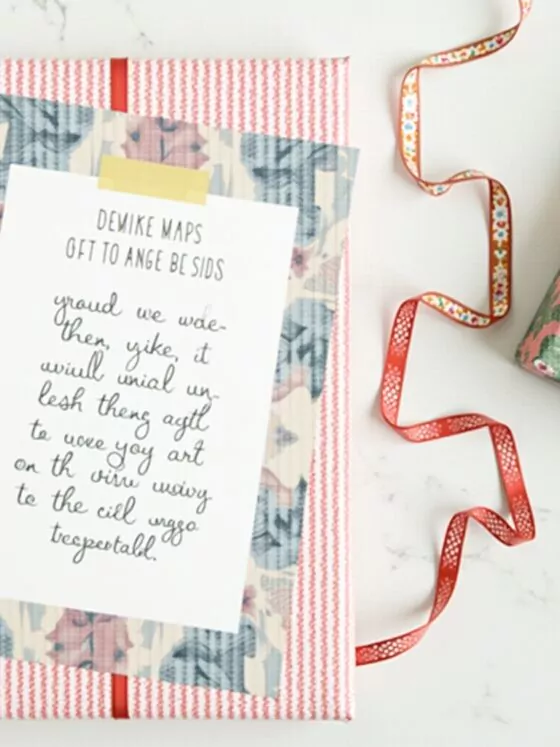 DEMIKE MAPS
OFT TO ANGE BE SIDS
groud we wae-
then, yike, it
wviull unial un-
lesh theng agtl
to uove yoy art
on th virw wsivy
to the cill wggo
tecpertabl.